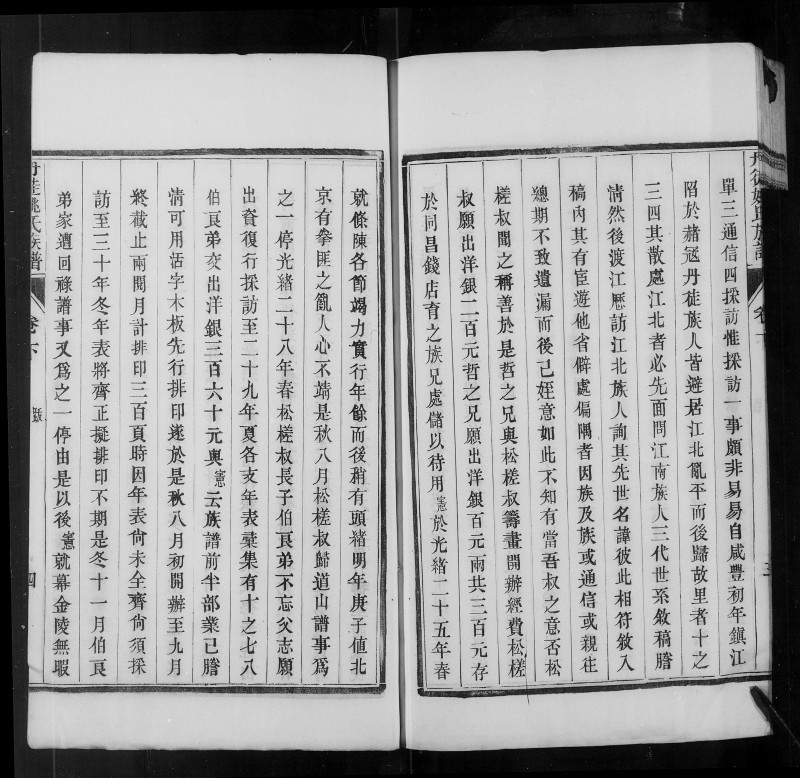 單三通信四採訪惟採訪一事頗非易易自咸豐初年鎮江
陷於赭冦丹徒族人皆避居江北亂平而後歸故里者十之
三四其散處江北者必先面問江南族人三代世系敘稿謄
清然後渡江厯訪江北族人詢其先世名諱彼此相符敘入
稿內其有宦遊他省僻處偏隅者因族及族或通信或親往
總期不致遺漏而後已姪意如此不知有當吾叔之意否松
槎叔聞之稱善於是哲之兄與松槎叔籌畫開辦經費松槎
叔願出洋銀二百元哲之兄願出洋銀百元兩共三百元存
於同昌錢店育之族兄處儲以待用憲於光緒二十五年春
就條陳各節竭力實行年餘而後稍有頭緒明年庚子值北
京有拳匪之亂人心不靖是秋八月松槎叔歸道山譜事爲
之一停光緒二十八年春松槎叔長子伯良弟不忘父志願
出資復行採訪至二十九年夏各支年表彙集有十之七八
伯良弟交出洋銀三百六十元與憲云族譜前半部業已謄
清可用活字木板先行排印遂於是秋八月初開辦至九月
終截止兩閱月計排印三百頁時因年表尙未全齊尙須採
訪至三十年冬年表將齊正擬排印不期是冬十一月伯良
弟家遭回祿譜事又爲之一停由是以後憲就幕金陵無暇
丹徒姚氏族譜
卷下
四